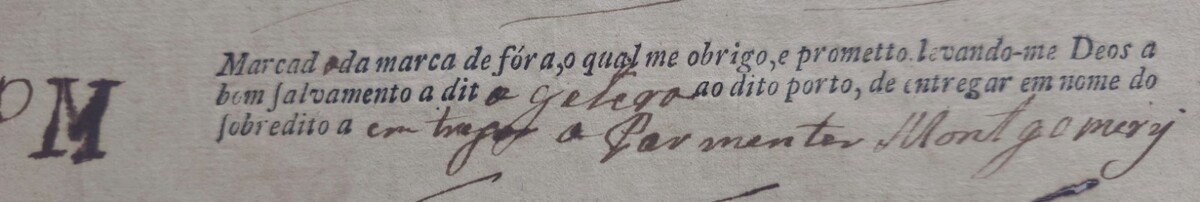 Marcad o da marca de fóra, o qual me obrigo, e prometto. levando-me Deos a
PM
bom ſalvamento a dit o ao dito porto, de entregar em nome do
ſobredito a entregar a Parmenter Montgomery